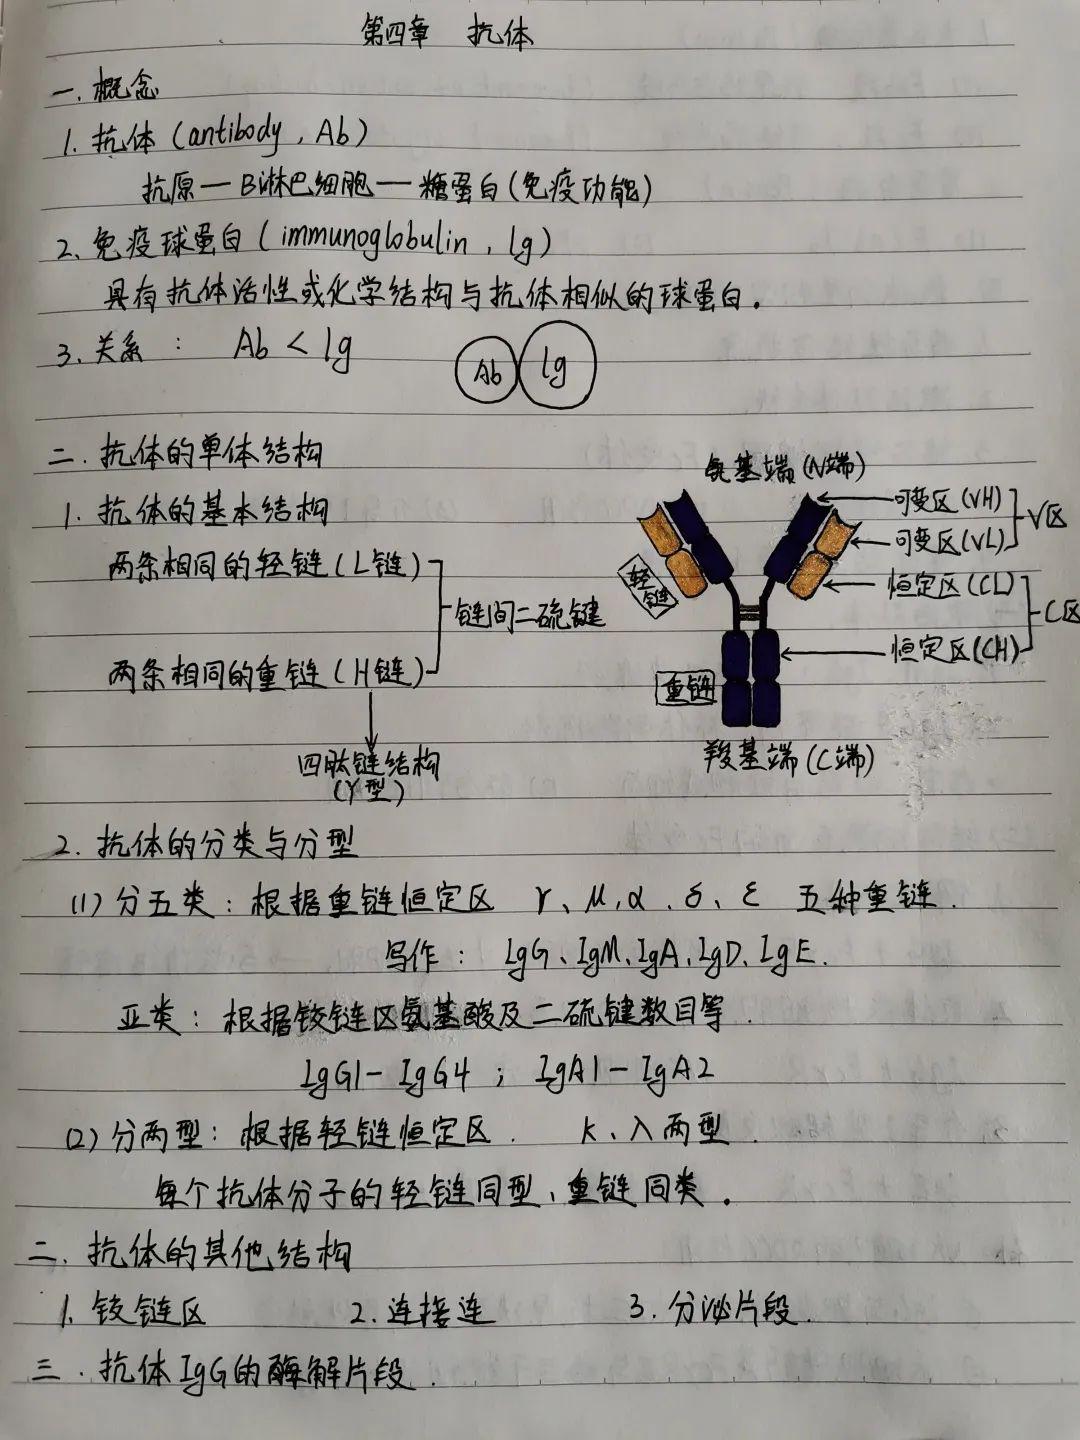 第四章 抗体
一.概念
1.抗体(antibody,Ab)
抗原—B淋巴细胞—糖蛋白(免疫功能)
2.免疫球蛋白(immunoglobulin,lg)
具有抗体活性或化学结构与抗体相似的球蛋白。
3.关系: Ab<lg
Ab lg
二.抗体的单体结构
1.抗体的基本结构
两条相同的轻链(L链)
链间二硫键
两条相同的重链(H链)
四肽链结构
(Y型)
氨基端(N端)
可变区(VH)
V区
可变区(VL)
轻链
恒定区(CL)
C区
恒定区(CH)
重链
羧基端(C端)
2.抗体的分类与分型
(1)分五类:根据重链恒定区 γ、μ,α、δ、ε 五种重链.
写作: lgG、IgM、IgA、IgD、IgE.
亚类:根据铰链区氨基酸及二硫键数目等.
lgG1-IgG4;IgA1-IgA2
(2)分两型:根据轻链恒定区. K、λ两型.
每个抗体分子的轻链同型、重链同类。
二.抗体的其他结构
1.铰链区 2.连接连 3.分泌片段.
三.抗体IgG的酶解片段.